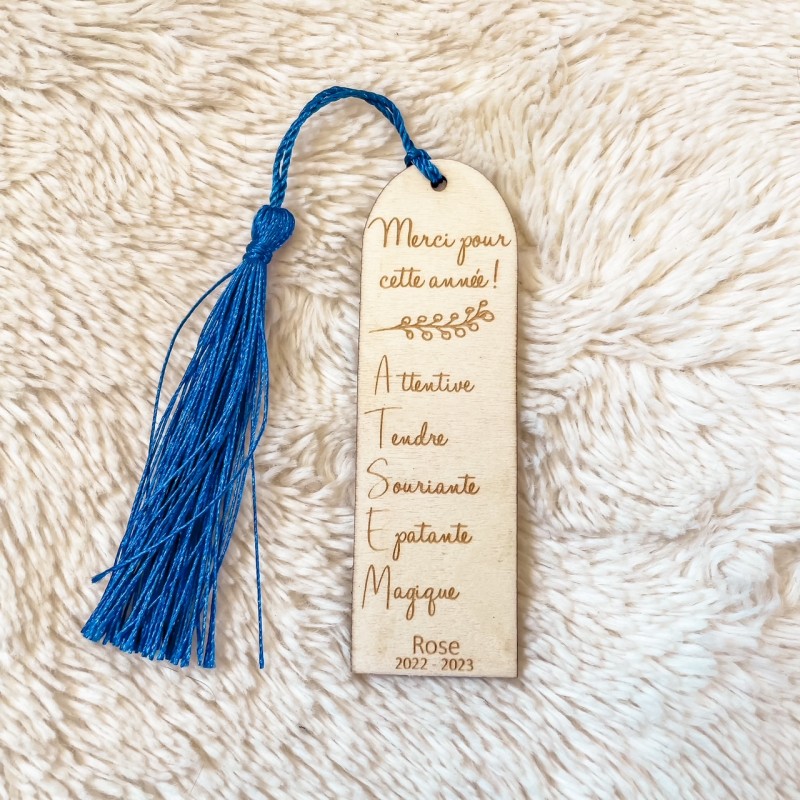 Merci pour
cette année!
Attentive
Tendre
Souriante
Epatante
Magique
Rose
2022 - 2023